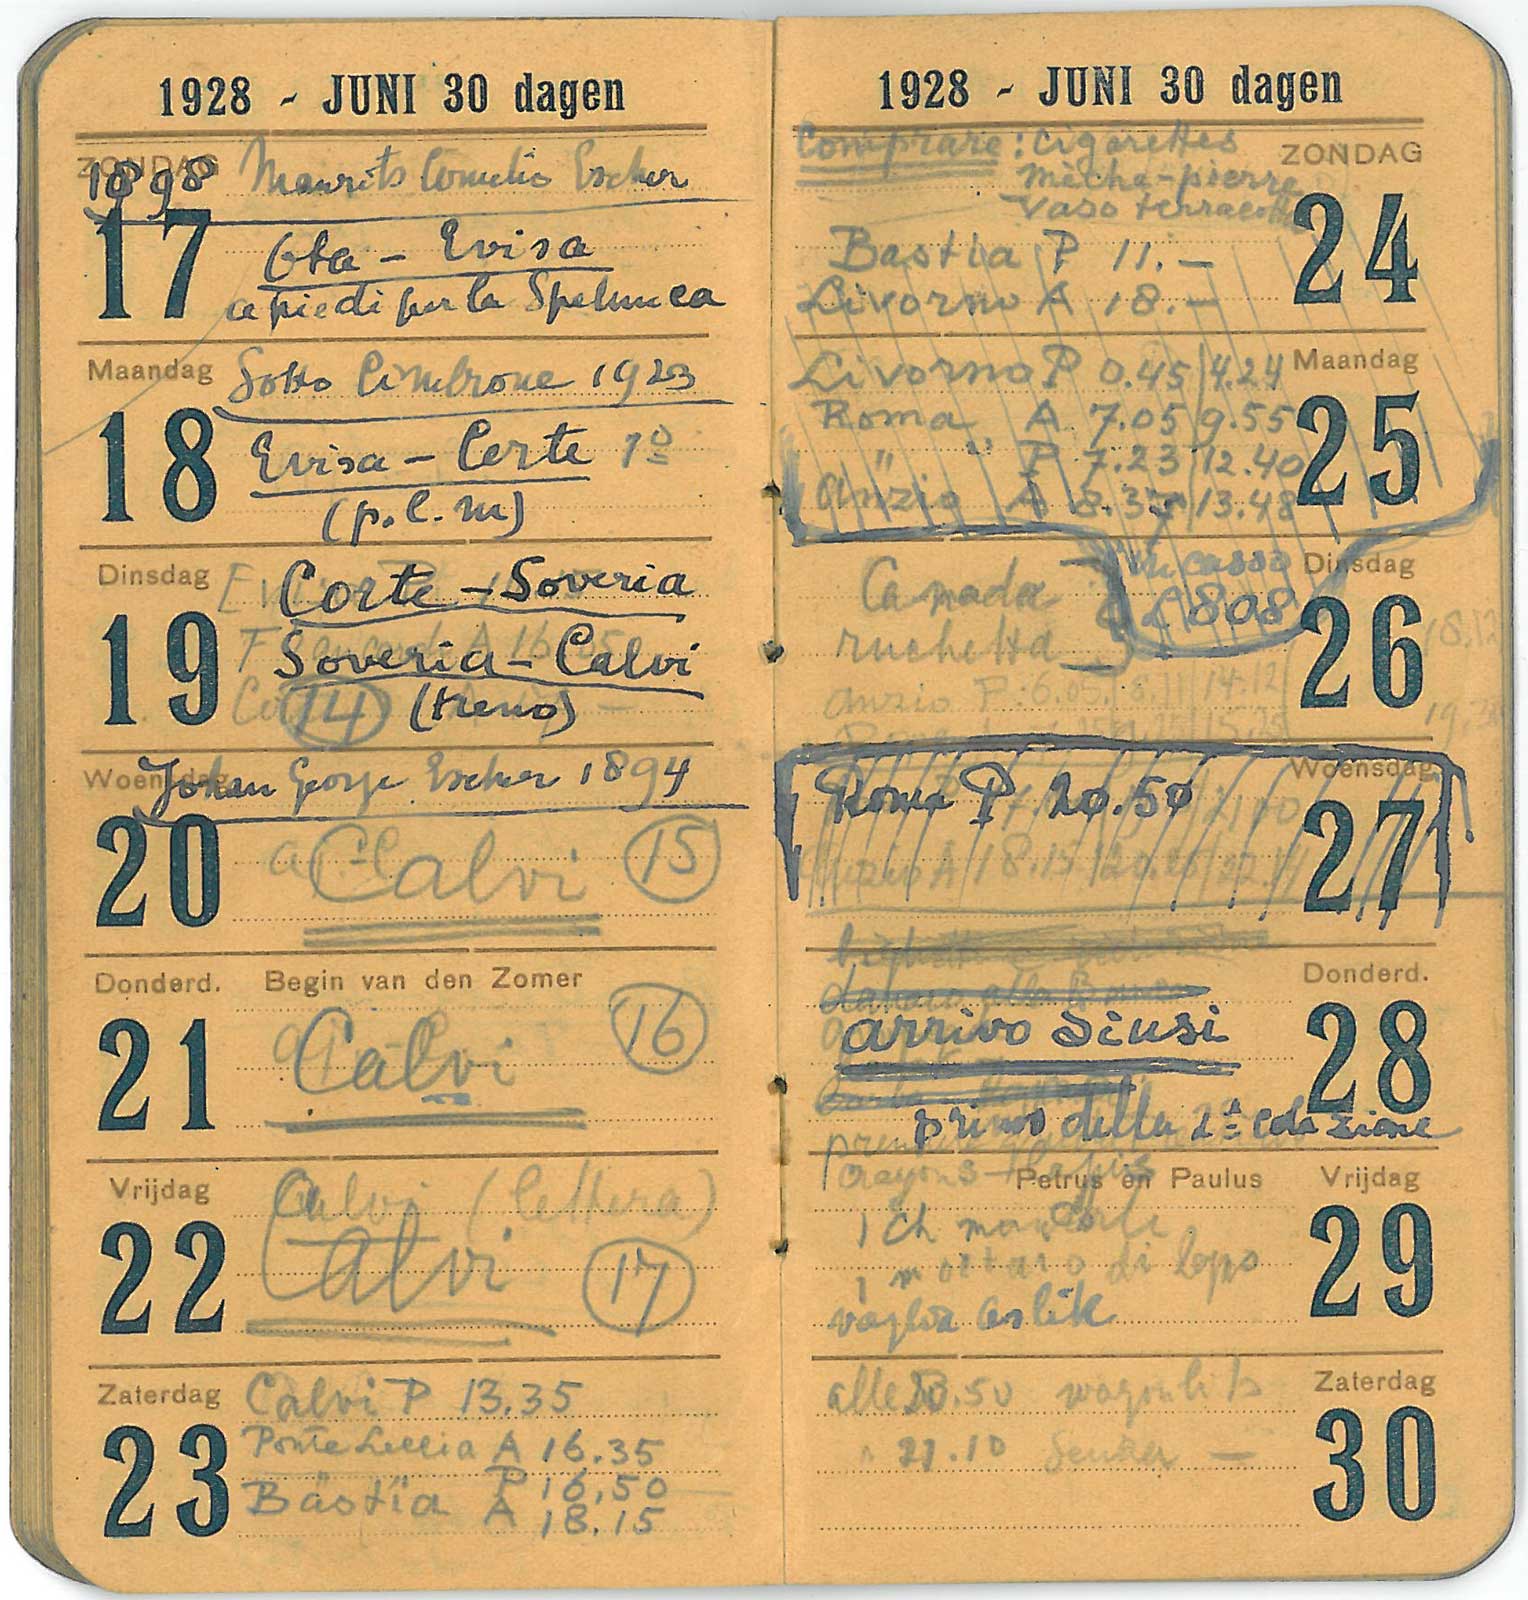 1928 - JUNI 30 dagen
ZONDAG
1898 Maurits Cornelis Escher
17
Ota - Evisa
a piedi per la Spelunca
Maandag
Sotto Cimbrone 1923
18
Evisa - Corte 1º
(p.l.m)
Dinsdag
19
Corte - Soveria
A 16
Soveria - Calvi
14 (treno)
Woensdag
Johan George Escher 1894
20
Calvi 15
Donderd. Begin van den Zomer
21
Calvi 16
Vrijdag
22
Calvi (lettera)
Calvi 17
Zaterdag
23
Calvi P 13.35
Ponte Leccia A 16.35
" P 16,50
Bastia A 18.15
1928 - JUNI 30 dagen
Comprare: Cigarettes
ZONDAG
mèche-pierre
vaso terracotta
24
Bastia P 11.—
Livorno A 18.—
Maandag
25
Livorno P 0.45 | 4.24
Roma A 7.05 | 9.55
" " P 7.23 | 12.40
Anzio A 8.35 | 13.48
Dinsdag
26
Canada
in casso
£ 808
ruchetta
18.12
Anzio P: 6.05. | 8.11 | 14.12
15.25
Woensdag
27
Roma P 20.50
Anzio A 18.15 | 20.26 | 22.14
Donderd.
28
arrivo Siusi
primo della 2ª colazione
crayons - lapis
Petrus en Paulus
Vrijdag
29
1
1 mortaro di
vaglia
Zaterdag
30
alle 20.50 wagonlits
" 21.10